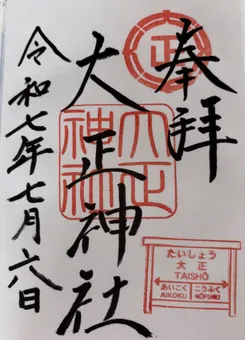 奉拝
正
大正神社
大正神社
令和七年七月六日
たいしょう
大正
TAISHŌ
あいこく
AIKOKU
こうふく
KŌFUKU